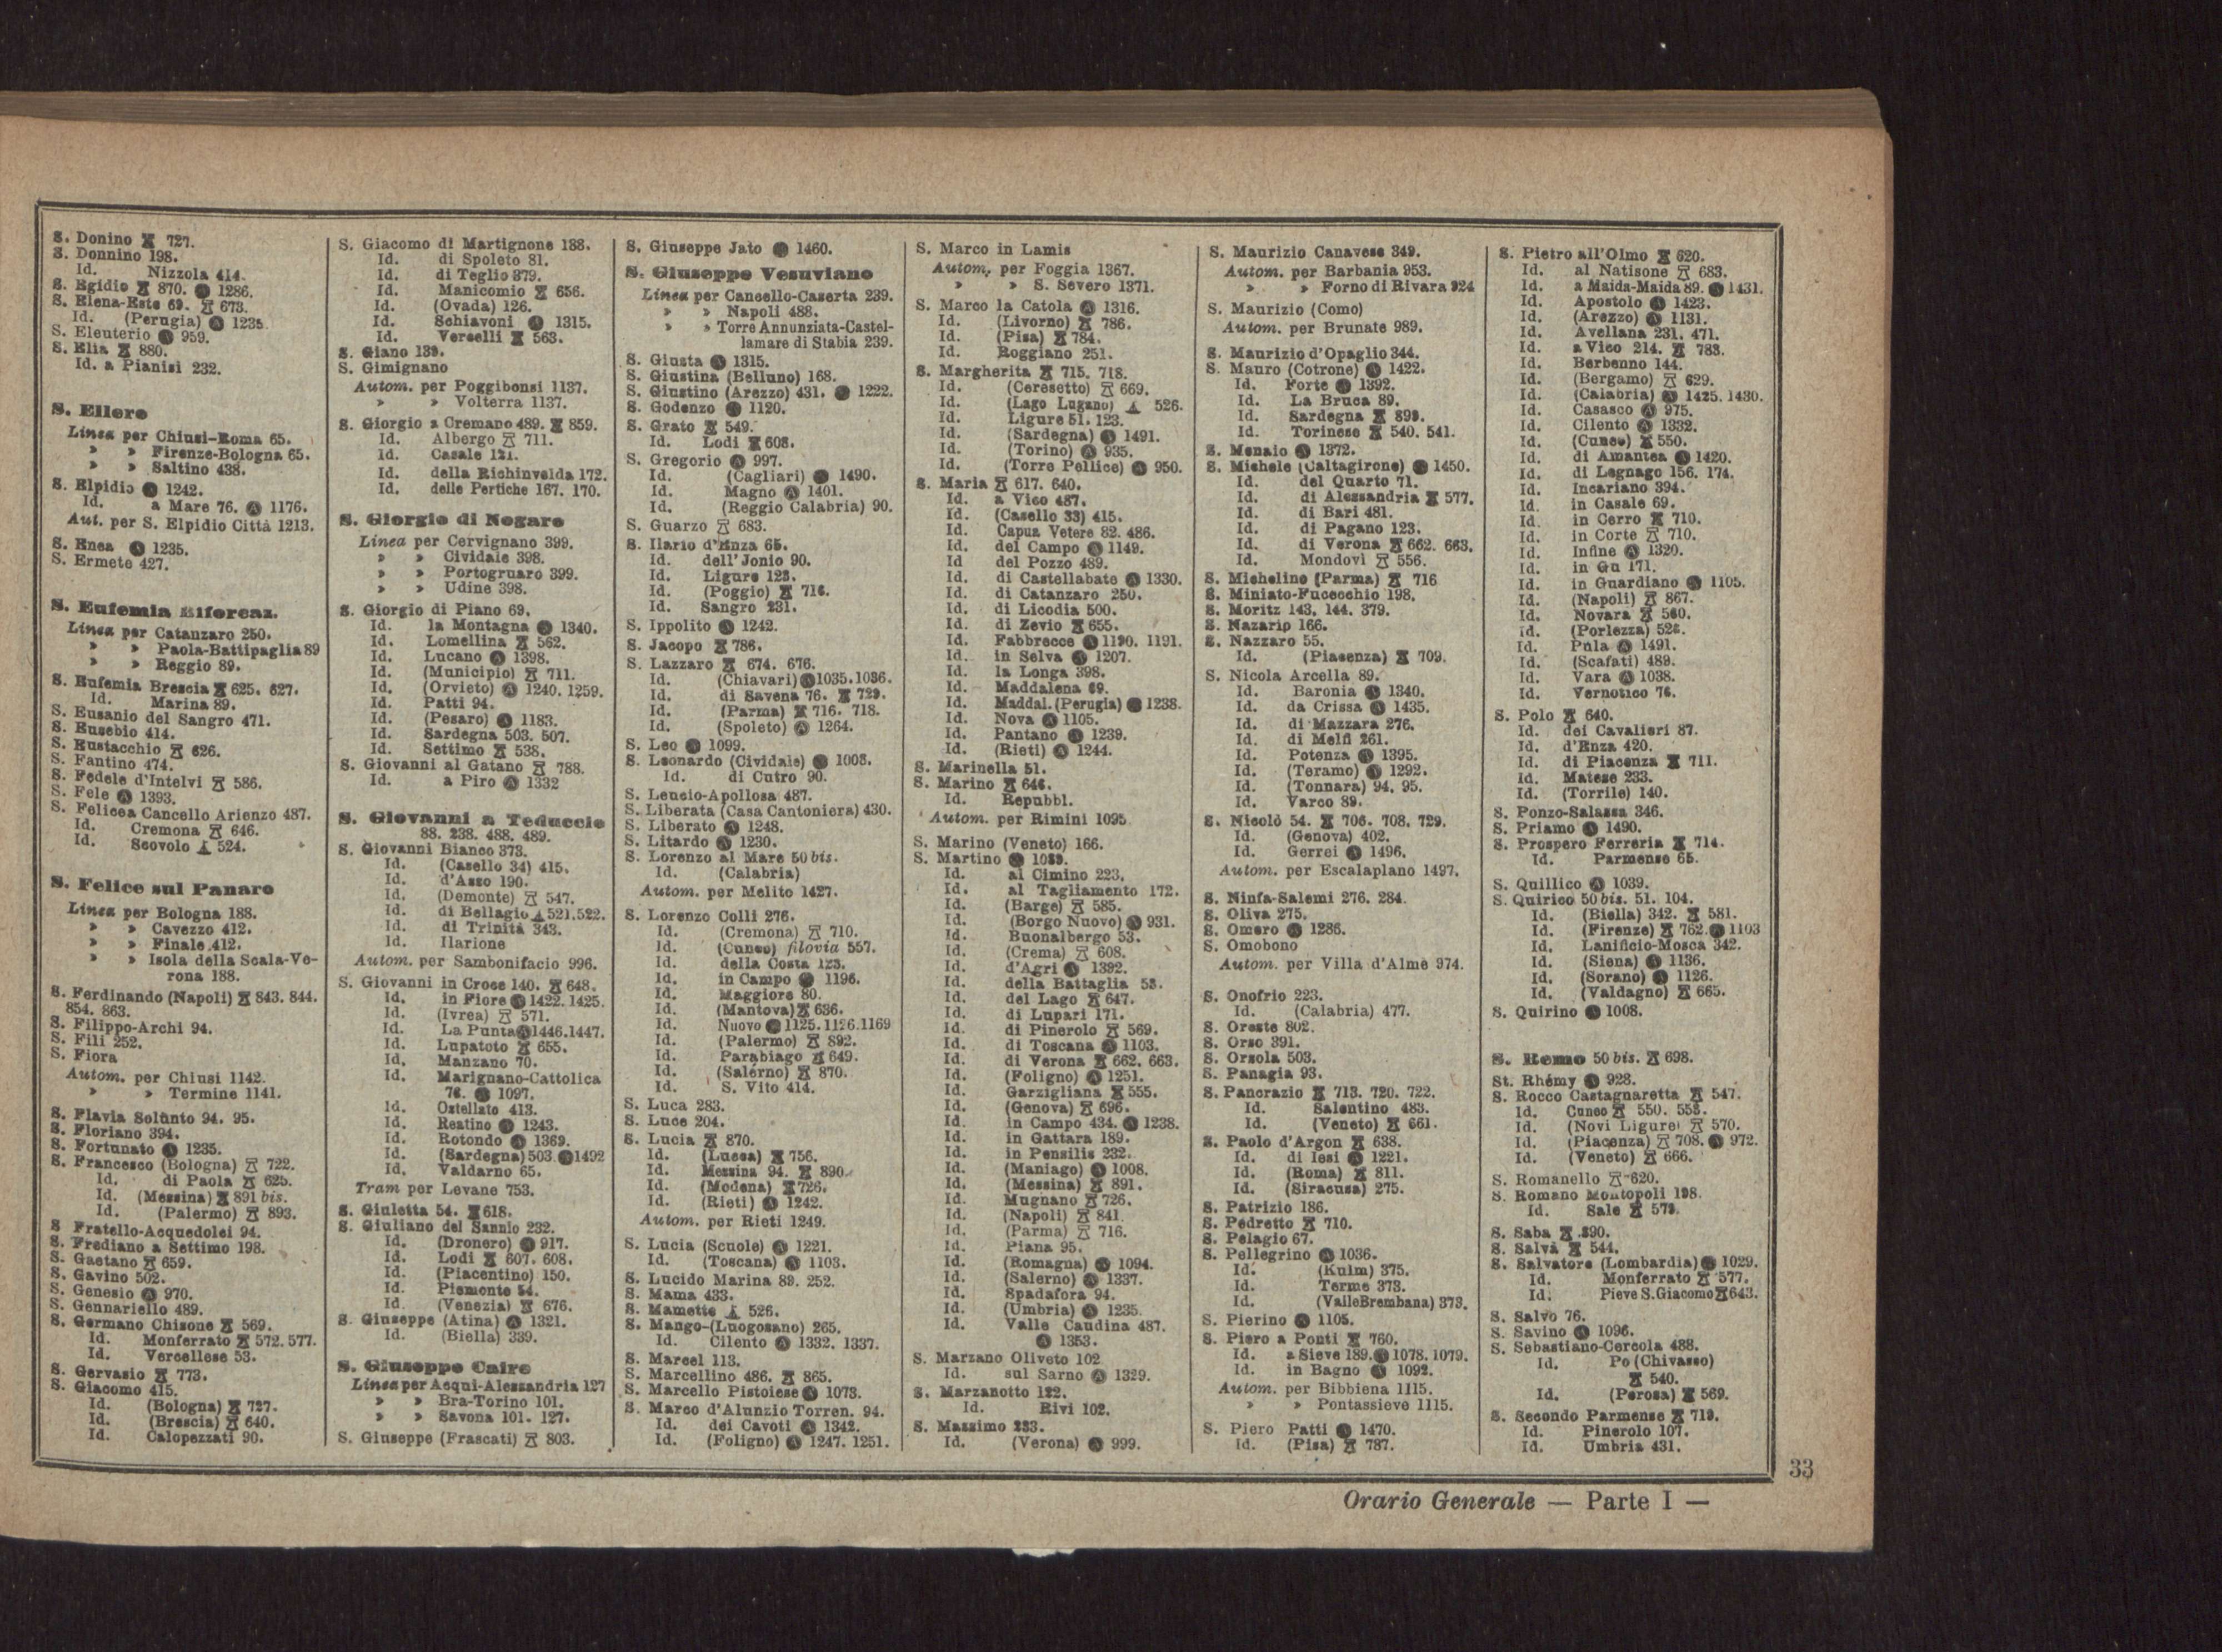 S. Donino 727.
S. Donnino 198.
Id. Nizzola 414.
S. Egidio 870. 1286.
S. Elena-Este 69. 673.
Id. (Perugia) 1235.
S. Eleuterio 959.
S. Elia 880.
Id. a Pianisi 232.
S. Ellero
Linea per Chiusi-Roma 65.
» » Firenze-Bologna 65.
» » Saltino 438.
S. Elpidio 1242.
Id. a Mare 76. Ⓐ 1176.
Aut. per S. Elpidio Città 1213.
S. Enea 1235.
S. Ermete 427.
S. Eufemia
Linea per Catanzaro 250.
» » Paola-Battipaglia 89
» » Reggio 89.
S. Eufemia Brescia 625. 627.
Id. Marina 89.
S. Eusanio del Sangro 471.
S. Eusebio 414.
S. Eustacchio 626.
S. Fantino 474.
S. Fedele d'Intelvi 586.
S. Fele Ⓐ 1393.
S. Felicea Cancello Arienzo 487.
Id. Cremona 646.
Id. Scovolo 524.
S. Felice sul Panaro
Linea per Bologna 188.
» » Cavezzo 412.
» » Finale 412.
» » Isola della Scala-Ve-
rona 188.
S. Ferdinando (Napoli) 843. 844.
854. 863.
S. Filippo-Archi 94.
S. Fili 252.
S. Fiora
Autom. per Chiusi 1142.
» » Termine 1141.
S. Flavia Solùnto 94. 95.
S. Floriano 394.
S. Fortunato 1235.
S. Francesco (Bologna) 722.
Id. di Paola 625.
Id. (Messina) 891 bis.
Id. (Palermo) 893.
S Fratello-Acquedolci 94.
S. Frediano a Settimo 198.
S. Gaetano 659.
S. Gavino 502.
S. Genesio Ⓐ 970.
S. Gennariello 489.
S. Germano Chisone 569.
Id. Monferrato 572. 577.
Id. Vercellese 53.
S. Gervasio 773.
S. Giacomo 415.
Id. (Bologna) 727.
Id. (Brescia) 640.
Id. Calopezzati 90.
S. Giacomo di Martignone 188.
Id. di Spoleto 81.
Id. di Teglio 379.
Id. Manicomio 656.
Id. (Ovada) 126.
Id. Schiavoni 1315.
Id. Vercelli 563.
S. Giano 139.
S. Gimignano
Autom. per Poggibonsi 1137.
» » Volterra 1137.
S. Giorgio a Cremano 489. 859.
Id. Albergo 711.
Id. Casale 121.
Id. della Richinvelda 172.
Id. delle Pertiche 167. 170.
S. Giorgio di Nogaro
Linea per Cervignano 399.
» » Cividale 398.
» » Portogruaro 399.
» » Udine 398.
S. Giorgio di Piano 69.
Id. la Montagna 1340.
Id. Lomellina 562.
Id. Lucano Ⓐ 1398.
Id. (Municipio) 711.
Id. (Orvieto) Ⓐ 1240. 1259.
Id. Patti 94.
Id. (Pesaro) 1183.
Id. Sardegna 503. 507.
Id. Settimo 538.
S. Giovanni al Gatano 788.
Id. a Piro Ⓐ 1332
S. Giovanni a Teduccio
88. 238. 488. 489.
S. Giovanni Bianco 373.
Id. (Casello 34) 415.
Id. d'Asso 190.
Id. (Demonte) 547.
Id. di Bellagio 521. 522.
Id. di Trinità 343.
Id. Ilarione
Autom. per Sambonifacio 996.
S. Giovanni in Croce 140. 648.
Id. in Fiore 1422. 1425.
Id. (Ivrea) 571.
Id. La Punta Ⓐ 1446. 1447.
Id. Lupatoto 655.
Id. Manzano 70.
Id. Marignano-Cattolica
76. 1097.
Id. Ostellato 413.
Id. Reatino 1243.
Id. Rotondo 1369.
Id. (Sardegna) 503. 1492
Id. Valdarno 65.
Tram per Levane 753.
S. Giuletta 54. 618.
S. Giuliano del Sannio 232.
Id. (Dronero) 917.
Id. Lodi 607. 608.
Id. (Piacentino) 150.
Id. Piemonte 54.
Id. (Venezia) 676.
S. Giuseppe (Atina) Ⓐ 1321.
Id. (Biella) 339.
S. Giuseppe Cairo
Linea per Acqui-Alessandria 127
» » Bra-Torino 101.
» » Savona 101. 127.
S. Giuseppe (Frascati) 803.
S. Giuseppe Jato 1460.
S. Giuseppe Vesuviano
Linea per Cancello-Caserta 239.
» » Napoli 488.
» » Torre Annunziata-Castel-
lamare di Stabia 239.
S. Giusta 1315.
S. Giustina (Belluno) 168.
S. Giustino (Arezzo) 431. 1222.
S. Godenzo 1120.
S. Grato 549.
Id. Lodi 608.
S. Gregorio Ⓐ 997.
Id. (Cagliari) 1490.
Id. Magno Ⓐ 1401.
Id. (Reggio Calabria) 90.
S. Guarzo 683.
S. Ilario d'Enza 65.
Id. dell'Jonio 90.
Id. Ligure 123.
Id. (Poggio) 716.
Id. Sangro 231.
S. Ippolito 1242.
S. Jacopo 786.
S. Lazzaro 674. 676.
Id. (Chiavari) 1035. 1036.
Id. di Savena 76. 729.
Id. (Parma) 716. 718.
Id. (Spoleto) Ⓐ 1264.
S. Leo 1099.
S. Leonardo (Cividale) 1008.
Id. di Cutro 90.
S. Leucio-Apollosa 487.
S. Liberata (Casa Cantoniera) 430.
S. Liberato 1248.
S. Litardo 1230.
S. Lorenzo al Mare 50 bis.
Id. (Calabria)
Autom. per Melito 1427.
S. Lorenzo Colli 276.
Id. (Cremona) 710.
Id. (Cuneo) filovia 557.
Id. della Costa 123.
Id. in Campo 1196.
Id. Maggiore 80.
Id. (Mantova) 636.
Id. Nuovo 1125. 1126. 1169
Id. (Palermo) 892.
Id. Parabiago 649.
Id. (Salerno) 870.
Id. S. Vito 414.
S. Luca 283.
S. Luce 204.
S. Lucia 870.
Id. (Lucca) 756.
Id. Messina 94. 890.
Id. (Modena) 726.
Id. (Rieti) 1242.
Autom. per Rieti 1249.
S. Lucia (Scuole) Ⓐ 1221.
Id. (Toscana) 1103.
S. Lucido Marina 89. 252.
S. Mama 433.
S. Mamette 526.
S. Mango-(Luogosano) 265.
Id. Cilento Ⓐ 1332. 1337.
S. Marcel 113.
S. Marcellino 486. 865.
S. Marcello Pistoiese 1073.
S. Marco d'Alunzio Torren. 94.
Id. dei Cavoti 1342.
Id. (Foligno) 1247. 1251.
S. Marco in Lamis
Autom. per Foggia 1367.
» » S. Severo 1371.
S. Marco la Catola Ⓐ 1316.
Id. (Livorno) 786.
Id. (Pisa) 784.
Id. Roggiano 251.
S. Margherita 715. 718.
Id. (Ceresetto) 669.
Id. (Lago Lugano) 526.
Id. Ligure 51. 123.
Id. (Sardegna) 1491.
Id. (Torino) Ⓐ 935.
Id. (Torre Pellice) 950.
S. Maria 617. 640.
Id. a Vico 487.
Id. (Casello 33) 415.
Id. Capua Vetere 82. 486.
Id. del Campo 1149.
Id del Pozzo 489.
Id. di Castellabate Ⓐ 1330.
Id. di Catanzaro 250.
Id. di Licodia 500.
Id. di Zevio 655.
Id. Fabbrecce 1190. 1191.
Id. in Selva 1207.
Id. la Longa 398.
Id. Maddalena 69.
Id. Maddal. (Perugia) 1238.
Id. Nova Ⓐ 1105.
Id. Pantano 1239.
Id. (Rieti) Ⓐ 1244.
S. Marinella 51.
S. Marino 646.
Id. Repubbl.
Autom. per Rimini 1095.
S. Marino (Veneto) 166.
S. Martino 1089.
Id. al Cimino 223.
Id. al Tagliamento 172.
Id. (Barge) 585.
Id. (Borgo Nuovo) 931.
Id. Buonalbergo 53.
Id. (Crema) 608.
Id. d'Agri 1392.
Id. della Battaglia 53.
Id. del Lago 647.
Id. di Lupari 171.
Id. di Pinerolo 569.
Id. di Toscana 1103.
Id. di Verona 662. 663.
Id. (Foligno) Ⓐ 1251.
Id. Garzigliana 555.
Id. (Genova) 696.
Id. in Campo 434. 1238.
Id. in Gattara 189.
Id. in Pensilis 232.
Id. (Maniago) 1008.
Id. (Messina) 891.
Id. Mugnano 726.
Id. (Napoli) 841.
Id. (Parma) 716.
Id. Piana 95.
Id. (Romagna) 1094.
Id. (Salerno) 1337.
Id. Spadafora 94.
Id. (Umbria) 1235.
Id. Valle Caudina 487.
Ⓐ 1353.
S. Marzano Oliveto 102
Id. sul Sarno Ⓐ 1329.
S. Marzanotto 122.
Id. Rivi 102.
S. Massimo 233.
Id. (Verona) 999.
S. Maurizio Canavese 349.
Autom. per Barbania 953.
» » Forno di Rivara 924
S. Maurizio (Como)
Autom. per Brunate 989.
S. Maurizio d'Opaglio 344.
S. Mauro (Cotrone) Ⓐ 1422.
Id. Forte 1392.
Id. La Bruca 89.
Id. Sardegna 899.
Id. Torinese 540. 541.
S. Menaio 1372.
S. Michele (Caltagirone) 1450.
Id. del Quarto 71.
Id. di Alessandria 577.
Id. di Bari 481.
Id. di Pagano 123.
Id. di Verona 662. 663.
Id. Mondovì 556.
S. Michelino (Parma) 716
S. Miniato-Fucecchio 198.
S. Moritz 143. 144. 379.
S. Nazario 166.
S. Nazzaro 55.
Id. (Piacenza) 709.
S. Nicola Arcella 89.
Id. Baronia 1340.
Id. da Crissa 1435.
Id. di Mazzara 276.
Id. di Melfi 261.
Id. Potenza 1395.
Id. (Teramo) 1292.
Id. (Tonnara) 94. 95.
Id. Varco 89.
S. Nicolò 54. 706. 708. 729.
Id. (Genova) 402.
Id. Gerrei 1496.
Autom. per Escalaplano 1497.
S. Ninfa-Salemi 276. 284.
S. Oliva 275.
S. Omero 1286.
S. Omobono
Autom. per Villa d'Alme 974.
S. Onofrio 223.
Id. (Calabria) 477.
S. Oreste 802.
S. Orso 391.
S. Orsola 503.
S. Panagia 93.
S. Pancrazio 713. 720. 722.
Id. Salentino 483.
Id. (Veneto) 661.
S. Paolo d'Argon 638.
Id. di Iesi 1221.
Id. (Roma) 811.
Id. (Siracusa) 275.
S. Patrizio 186.
S. Pedretto 710.
S. Pelagio 67.
S. Pellegrino 1036.
Id. (Kulm) 375.
Id. Terme 373.
Id. (ValleBrembana) 373.
S. Pierino 1105.
S. Piero a Ponti 760.
Id. a Sieve 189. 1078. 1079.
Id. in Bagno 1092.
Autom. per Bibbiena 1115.
» » Pontassieve 1115.
S. Piero Patti 1470.
Id. (Pisa) 787.
S. Pietro all'Olmo 620.
Id. al Natisone 683.
Id. a Maida-Maida 89. 1431.
Id. Apostolo 1423.
Id. (Arezzo) 1131.
Id. Avellana 231. 471.
Id. a Vico 214. 783.
Id. Berbenno 144.
Id. (Bergamo) 629.
Id. (Calabria) 1425. 1430.
Id. Casasco Ⓐ 975.
Id. Cilento Ⓐ 1332.
Id. (Cuneo) 550.
Id. di Amantea 1420.
Id. di Legnago 156. 174.
Id. Incariano 394.
Id. in Casale 69.
Id. in Cerro 710.
Id. in Corte 710.
Id. Infine Ⓐ 1320.
Id. in Gu 171.
Id. in Guardiano 1105.
Id. (Napoli) 867.
Id. Novara 560.
Id. (Porlezza) 526.
Id. Pula Ⓐ 1491.
Id. (Scafati) 489.
Id. Vara Ⓐ 1038.
Id. Vernotico 76.
S. Polo 640.
Id. dei Cavalieri 87.
Id. d'Enza 420.
Id. di Piacenza 711.
Id. Matese 233.
Id. (Torrile) 140.
S. Ponzo-Salassa 346.
S. Priamo 1490.
S. Prospero Ferreria 714.
Id. Parmense 65.
S. Quillico Ⓐ 1039.
S. Quirico 50 bis. 51. 104.
Id. (Biella) 342. 581.
Id. (Firenze) 762. 1103
Id. Lanificio-Mosca 342.
Id. (Siena) 1136.
Id. (Sorano) 1126.
Id. (Valdagno) 665.
S. Quirino 1008.
S. Remo 50 bis. 698.
St. Rhémy 928.
S. Rocco Castagnaretta 547.
Id. Cuneo 550. 553.
Id. (Novi Ligure) 570.
Id. (Piacenza) 708. 972.
Id. (Veneto) 666.
S. Romanello 620.
S. Romano Montopoli 198.
Id. Sale 573.
S. Saba 890.
S. Salvà 544.
S. Salvatore (Lombardia) 1029.
Id. Monferrato 577.
Id. Pieve S. Giacomo 643.
S. Salvo 76.
S. Savino Ⓐ 1096.
S. Sebastiano-Cercola 488.
Id. Po (Chivasso)
540.
Id. (Perosa) 569.
S. Secondo Parmense 719.
Id. Pinerolo 107.
Id. Umbria 431.
33
Orario Generale — Parte I —